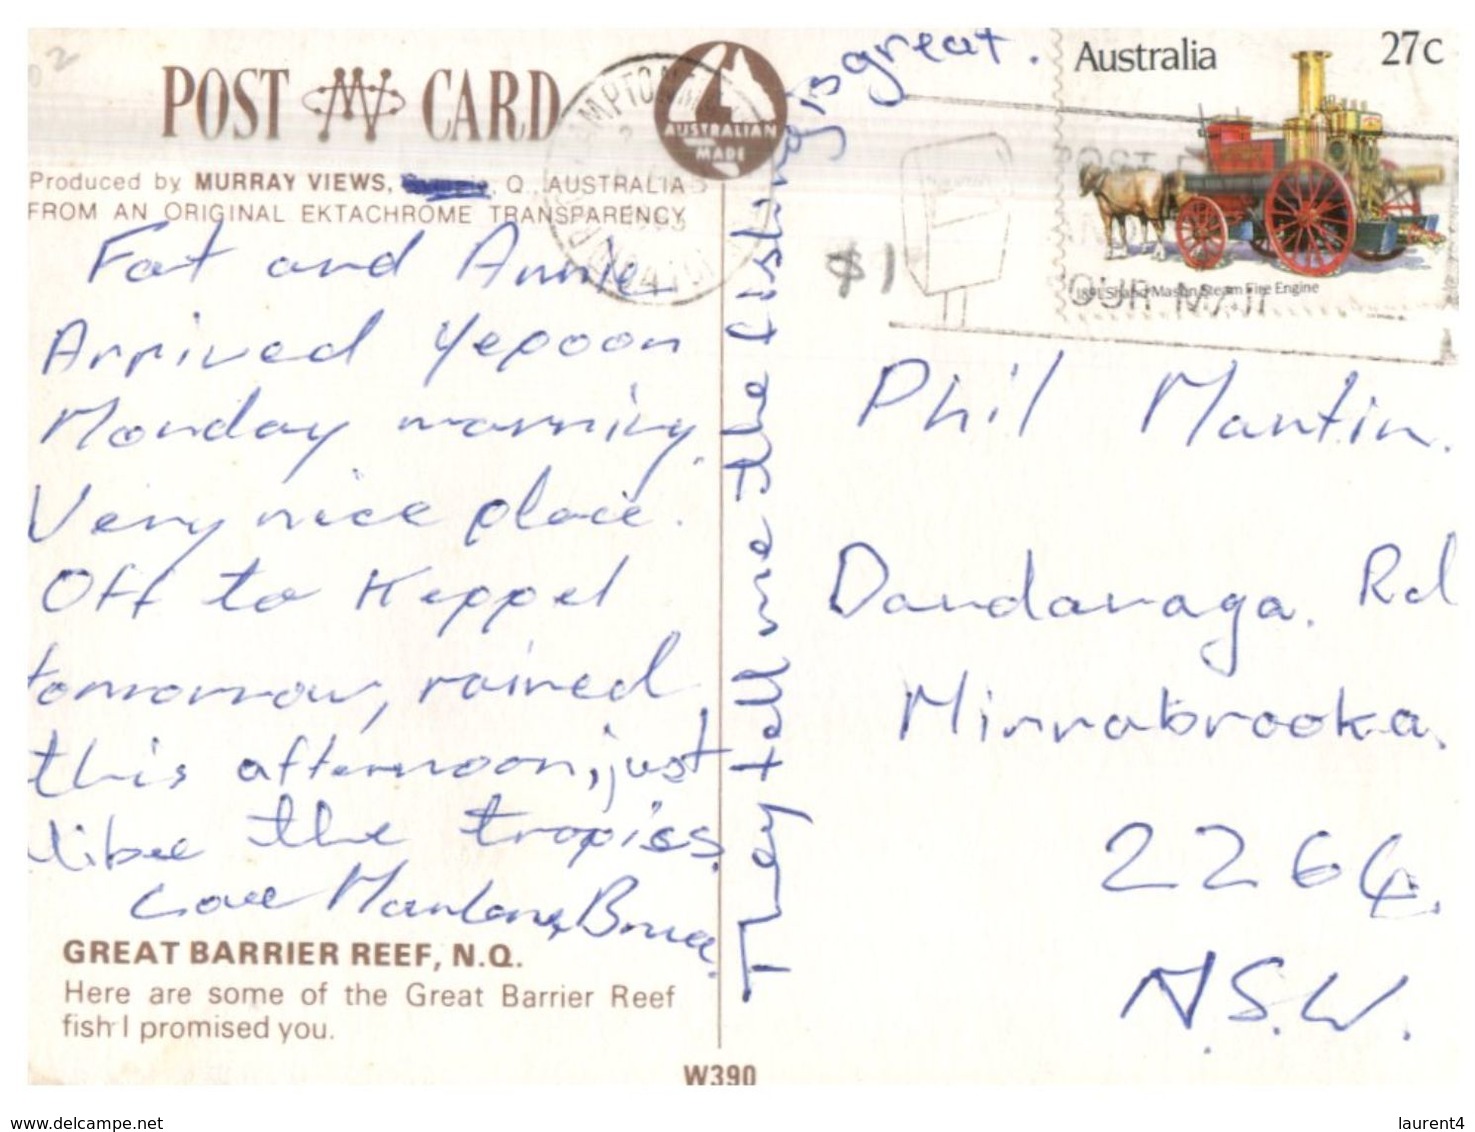 POST CARD
AUSTRALIAN
MADE
Produced by MURRAY VIEWS, Q., AUSTRALIA
FROM AN ORIGINAL EKTACHROME TRANSPARENCY
Fat and Annie
Arrived Yepoon
Monday morning.
Very nice place.
Off to Keppel
tomorrow, rained
this afternoon, just
like the tropics.
Love Marlane, Bruce.
They tell me the fishing is great.
GREAT BARRIER REEF, N.Q.
Here are some of the Great Barrier Reef
fish I promised you.
W390
Australia 27c
1891 Shand Mason Steam Fire Engine
POST
OUR MAIL
$1
Phil Mantin.
Dandaraga. Rd
Minnabrooka.
2264.
N.S.W.
www.delcampe.net
laurent4